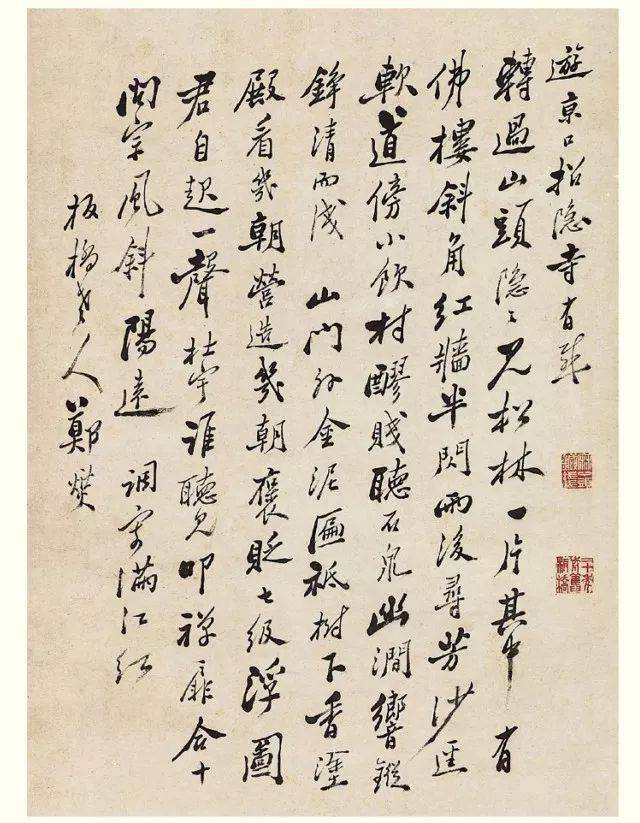 遊京口招隐寺有感
轉過山頭隐〻見松林一片其中有
佛樓斜角红牆半閃雨後尋芳沙逕
軟道傍小飲村醪賤聽石泉幽澗響鏦
錚清而浅 山门外金泥匾祗樹下香塗
殿看幾朝營造幾朝褒貶七级浮圖
君自起一聲杜宇誰聽見叩禅扉合十
問宗風斜陽遠 調寄满江红
板橋老人鄭燮